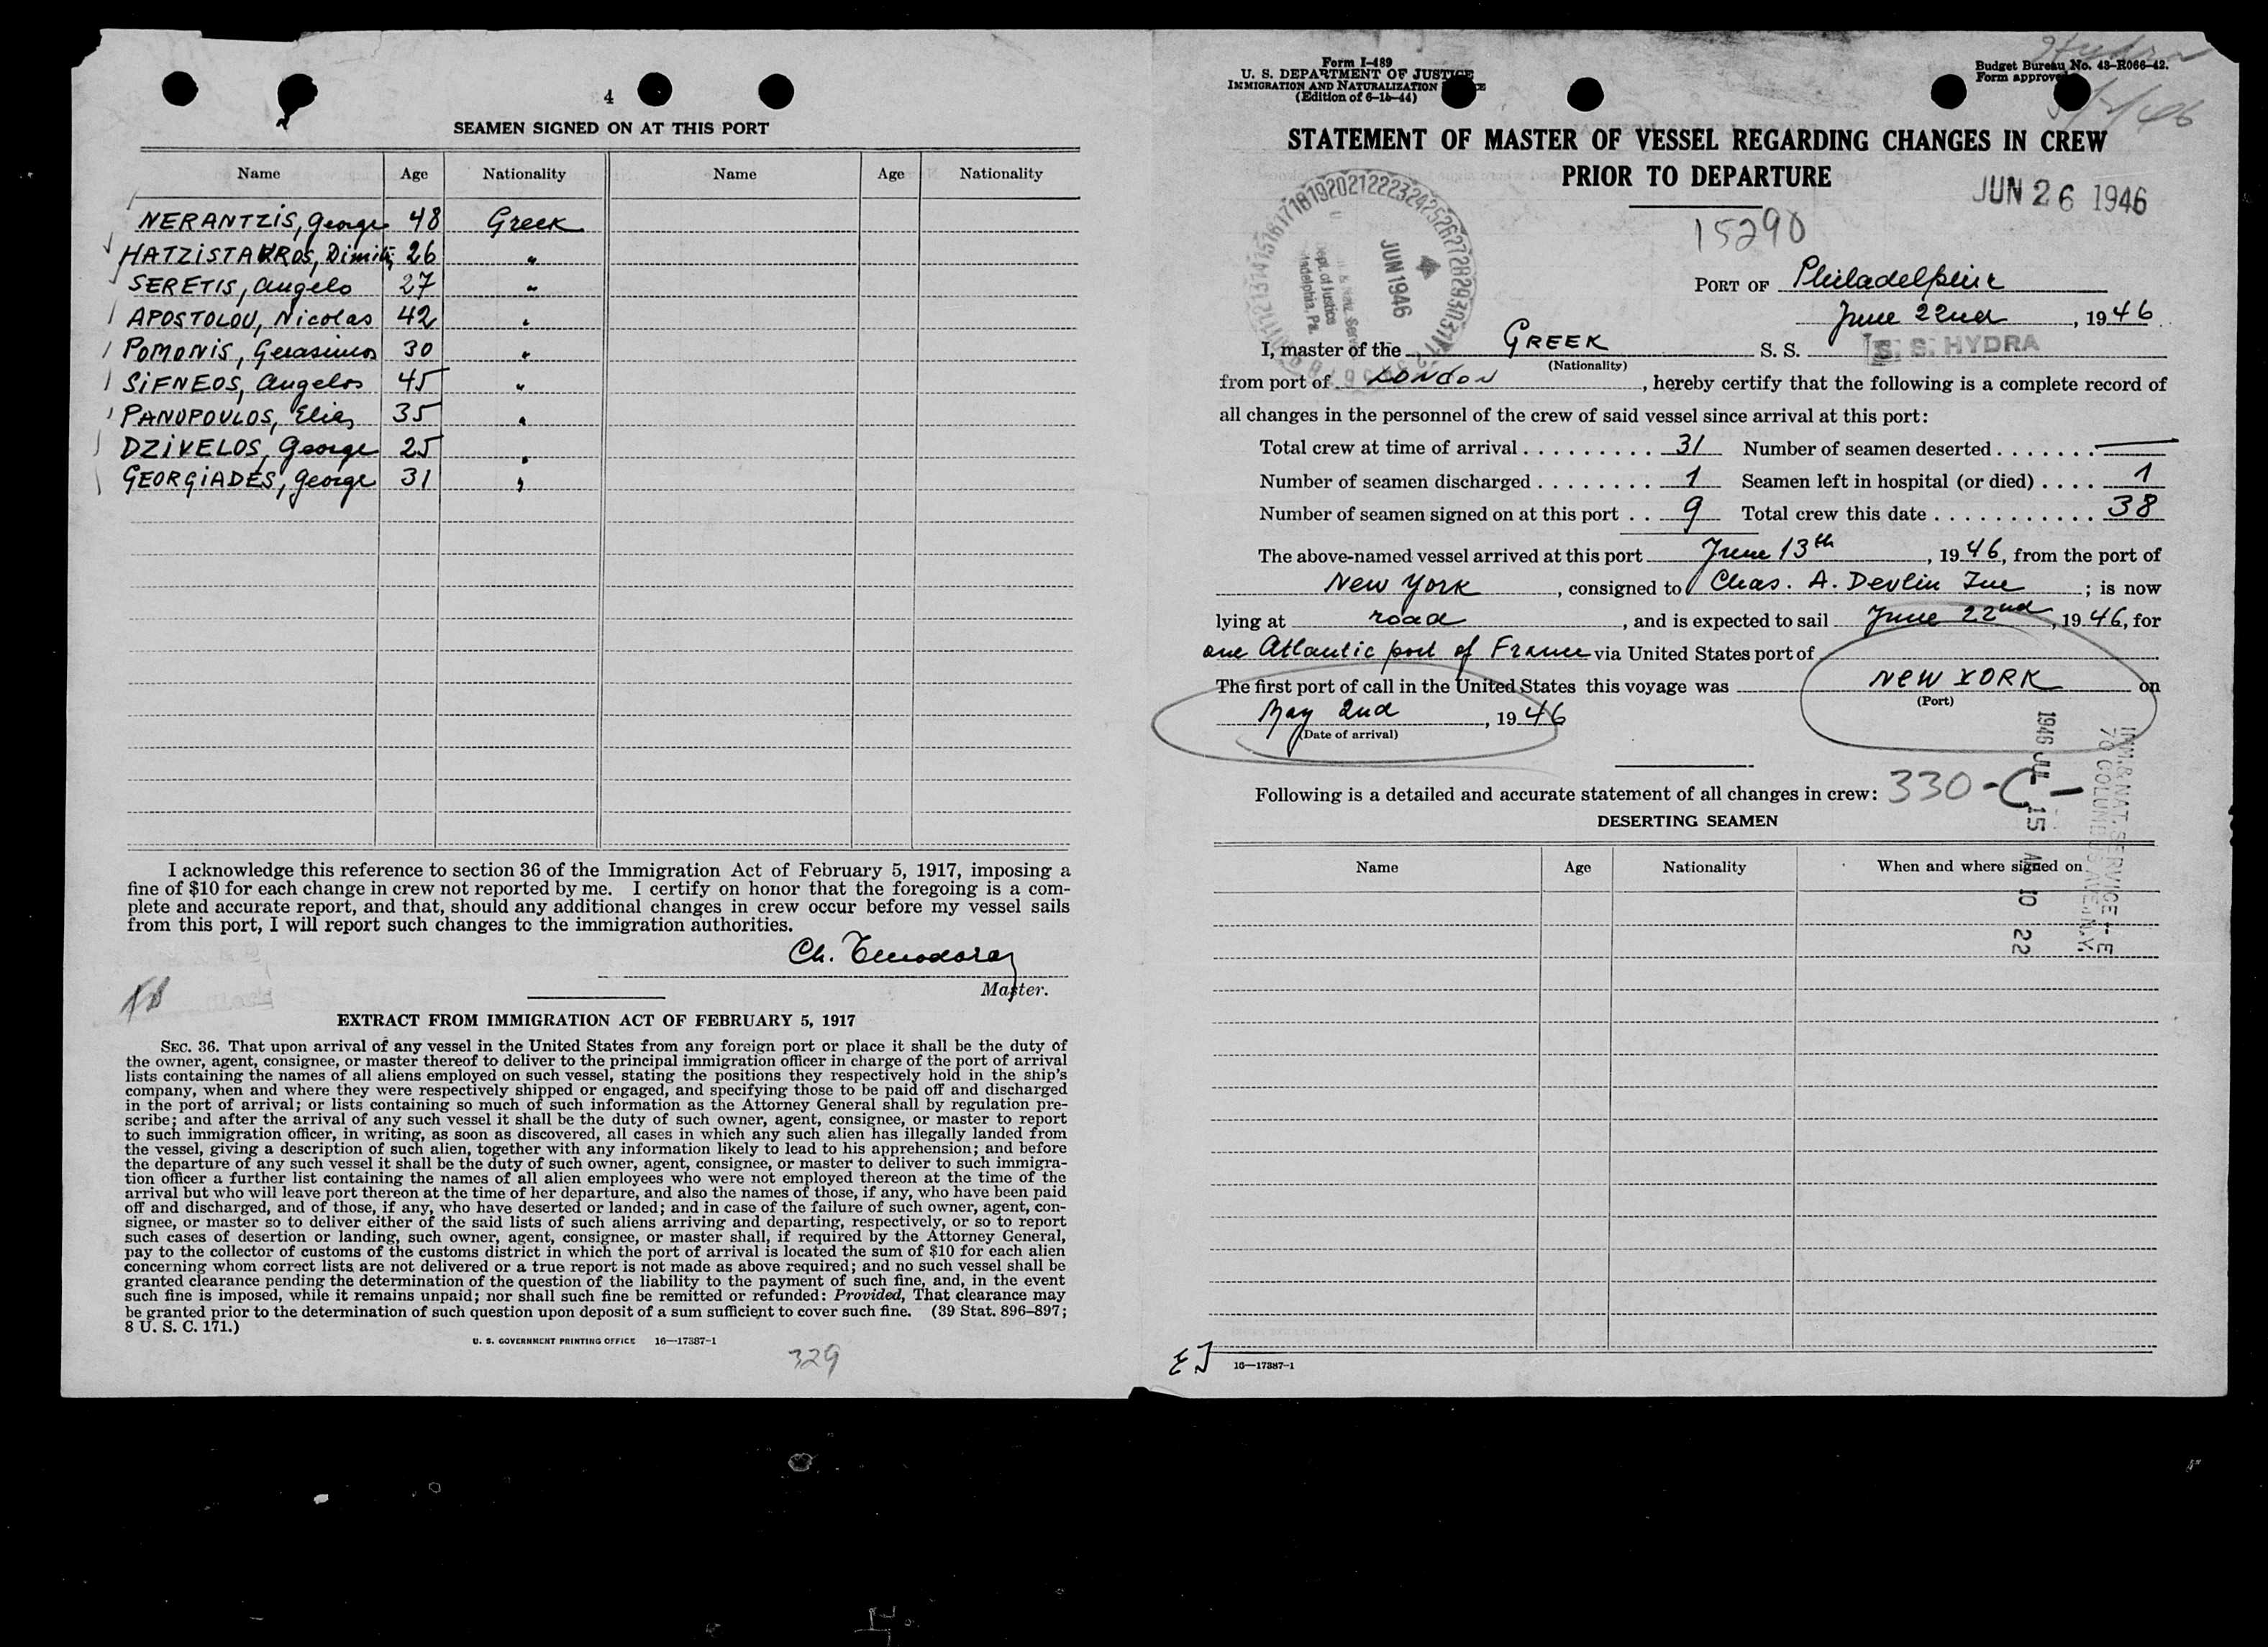 4
SEAMEN SIGNED ON AT THIS PORT
Name Age Nationality Name Age Nationality
NERANTZIS, George 48 Greek
HATZISTAVROS, Dimitri 26 "
SERETIS, Angelo 27 "
APOSTOLOU, Nicolas 42 "
POMONIS, Gerasimos 30 "
SIFNEOS, Angelos 45 "
PANOPOULOS, Elias 35 "
DZIVELOS, George 25 "
GEORGIADES, George 31 "
I acknowledge this reference to section 36 of the Immigration Act of February 5, 1917, imposing a
fine of $10 for each change in crew not reported by me. I certify on honor that the foregoing is a com-
plete and accurate report, and that, should any additional changes in crew occur before my vessel sails
from this port, I will report such changes to the immigration authorities.
Ch.
Master.
EXTRACT FROM IMMIGRATION ACT OF FEBRUARY 5, 1917
SEC. 36. That upon arrival of any vessel in the United States from any foreign port or place it shall be the duty of
the owner, agent, consignee, or master thereof to deliver to the principal immigration officer in charge of the port of arrival
lists containing the names of all aliens employed on such vessel, stating the positions they respectively hold in the ship's
company, when and where they were respectively shipped or engaged, and specifying those to be paid off and discharged
in the port of arrival; or lists containing so much of such information as the Attorney General shall by regulation pre-
scribe; and after the arrival of any such vessel it shall be the duty of such owner, agent, consignee, or master to report
to such immigration officer, in writing, as soon as discovered, all cases in which any such alien has illegally landed from
the vessel, giving a description of such alien, together with any information likely to lead to his apprehension; and before
the departure of any such vessel it shall be the duty of such owner, agent, consignee, or master to deliver to such immigra-
tion officer a further list containing the names of all alien employees who were not employed thereon at the time of the
arrival but who will leave port thereon at the time of her departure, and also the names of those, if any, who have been paid
off and discharged, and of those, if any, who have deserted or landed; and in case of the failure of such owner, agent, con-
signee, or master so to deliver either of the said lists of such aliens arriving and departing, respectively, or so to report
such cases of desertion or landing, such owner, agent, consignee, or master shall, if required by the Attorney General,
pay to the collector of customs of the customs district in which the port of arrival is located the sum of $10 for each alien
concerning whom correct lists are not delivered or a true report is not made as above required; and no such vessel shall be
granted clearance pending the determination of the question of the liability to the payment of such fine, and, in the event
such fine is imposed, while it remains unpaid; nor shall such fine be remitted or refunded: Provided, That clearance may
be granted prior to the determination of such question upon deposit of a sum sufficient to cover such fine. (39 Stat. 896–897;
8 U. S. C. 171.)
U. S. GOVERNMENT PRINTING OFFICE 16—17387-1
329
Hydra
Form I-489
U. S. DEPARTMENT OF JUSTICE
IMMIGRATION AND NATURALIZATION
(Edition of 6-15-44)
Budget Bureau No. 43-R066-42.
Form approved
STATEMENT OF MASTER OF VESSEL REGARDING CHANGES IN CREW
PRIOR TO DEPARTURE
JUN 26 1946
15290
JUN 1946
Dept. of Justice
Philadelphia, Pa.
PORT OF Philadelphia
June 22nd, 1946.
I, master of the GREEK S. S. S. S. HYDRA
(Nationality)
from port of LONDON, hereby certify that the following is a complete record of
all changes in the personnel of the crew of said vessel since arrival at this port:
Total crew at time of arrival . . . . . . . . . 31 Number of seamen deserted . . . . . . . —
Number of seamen discharged . . . . . . . . 1 Seamen left in hospital (or died) . . . . 1
Number of seamen signed on at this port . . 9 Total crew this date . . . . . . . . . . . 38
The above-named vessel arrived at this port June 13th, 1946, from the port of
New York, consigned to Chas. A. Devlin Inc; is now
lying at road, and is expected to sail June 22nd, 1946, for
one Atlantic port of France via United States port of
The first port of call in the United States this voyage was NEW YORK on
(Port)
May 2nd, 1946
(Date of arrival)
1946 JUL 15 AM 10 22
IMM. & NAT. SERVICE
70 COLUMBUS AVE., N.Y.
Following is a detailed and accurate statement of all changes in crew: 330-C-
DESERTING SEAMEN
Name Age Nationality When and where signed on
EJ 16—17387-1